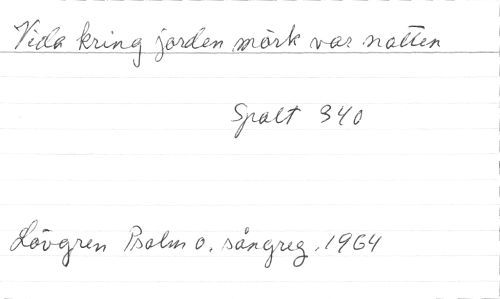 Vida kring jorden mörk var natten
Spalt 340
Lövgren Psalm o. sångreg. 1964